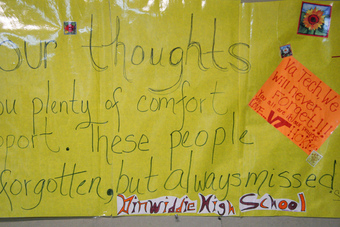 our thoughts
ou plenty of comfort
pport. These people
forgotten, but always missed.
Dinwiddie High School
Va Tech We
will never
forget!
VT